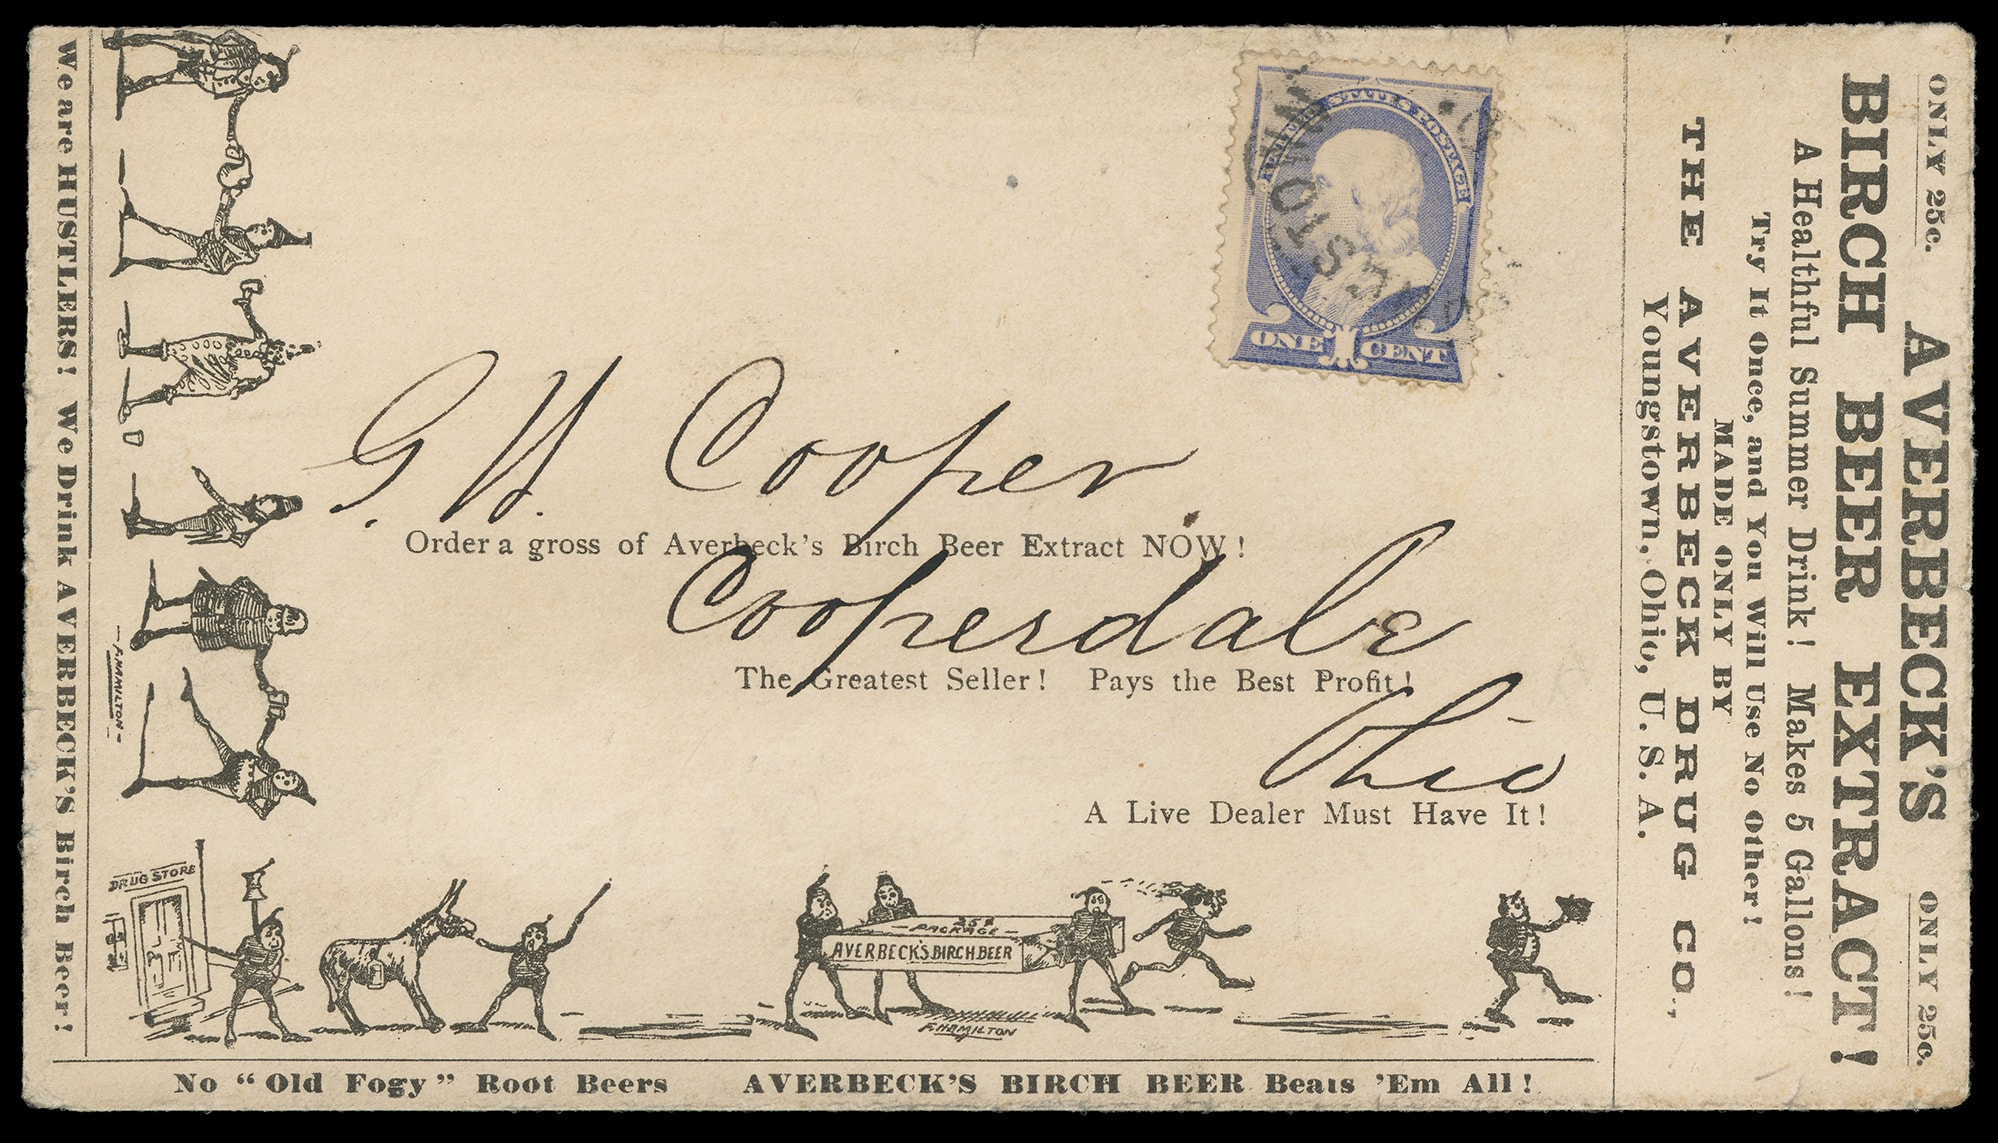 We are HUSTLERS! We Drink AVERBECK'S Birch Beer!
F. HAMILTON
UNITED STATES POSTAGE
ONE CENT
G. H. Cooper
Order a gross of Averbeck's Birch Beer Extract NOW!
Cooperdale
The Greatest Seller! Pays the Best Profit!
Ohio
A Live Dealer Must Have It!
DRUG STORE
25¢
PACKAGE
AVERBECK'S BIRCH BEER
F. HAMILTON
No "Old Fogy" Root Beers AVERBECK'S BIRCH BEER Beats 'Em All!
ONLY 25c. AVERBECK'S ONLY 25c.
BIRCH BEER EXTRACT!
A Healthful Summer Drink! Makes 5 Gallons!
Try It Once, and You Will Use No Other!
MADE ONLY BY
THE AVERBECK DRUG CO.,
Youngstown, Ohio, U. S. A.